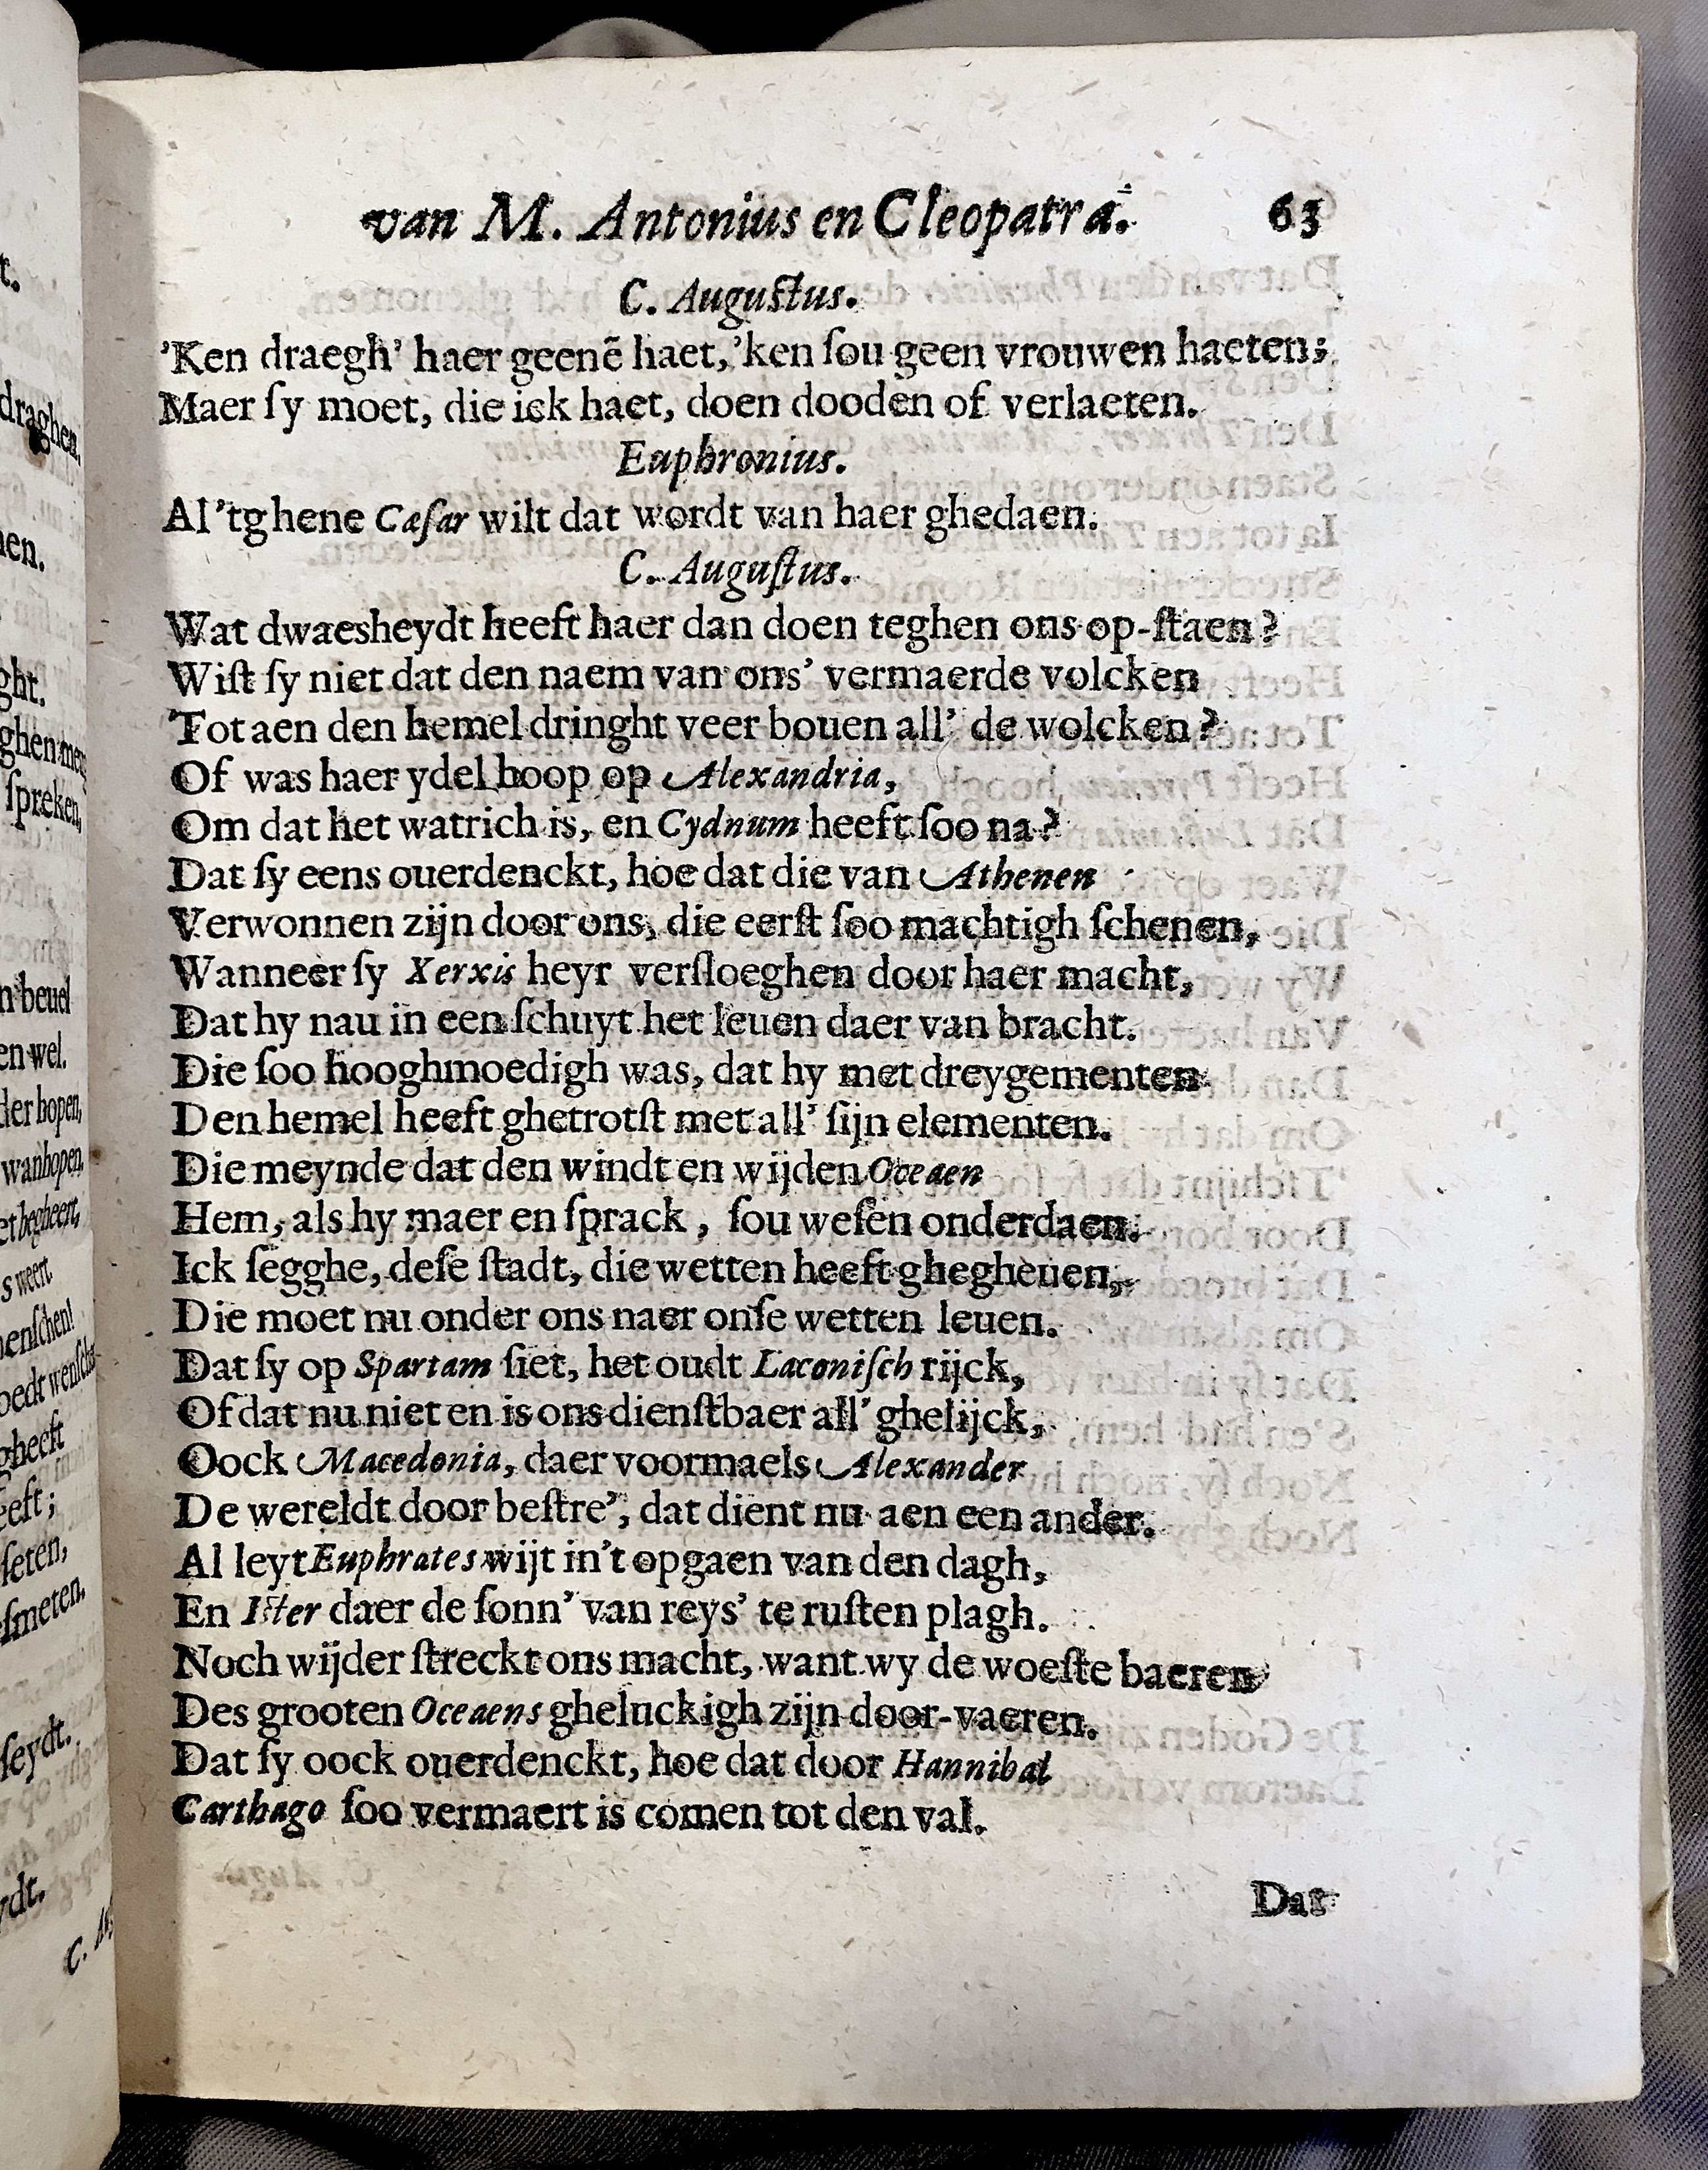 van M. Antonius en Cleopatra. 63
C. Auguſtus.
’Ken draegh’ haer geenẽ haet, ’ken ſou geen vrouwen haeten;
Maer ſy moet, die ick haet, doen dooden of verlaeten.
Euphronius.
Al ’tghene Caſar wilt dat wordt van haer ghedaen.
C. Auguſtus.
Wat dwaesheydt heeft haer dan doen teghen ons op-ſtaen?
Wiſt ſy niet dat den naem van ons’ vermaerde volcken
Tot aen den hemel dringht veer bouen all’ de wolcken?
Of was haer ydel hoop op Alexandria,
Om dat het watrich is, en Cydnum heeft ſoo na?
Dat ſy eens ouerdenckt, hoe dat die van Athenen
Verwonnen zijn door ons, die eerſt ſoo machtigh ſchenen,
Wanneer ſy Xerxis heyr verſloeghen door haer macht,
Dat hy nau in een ſchuyt het leuen daer van bracht.
Die ſoo hooghmoedigh was, dat hy met dreygementen
Den hemel heeft ghetrotſt met all’ ſijn elementen.
Die meynde dat den windt en wijden Oceaen
Hem, als hy maer en ſprack, ſou weſen onderdaen.
Ick ſegghe, deſe ſtadt, die wetten heeft ghegheuen,
Die moet nu onder ons naer onſe wetten leuen.
Dat ſy op Spartam ſiet, het oudt Laconiſch rijck,
Of dat nu niet en is ons dienſtbaer all’ ghelijck,
Oock Macedonia, daer voormaels Alexander
De wereldt door beſtre’, dat dient nu aen een ander.
Al leyt Euphrates wijt in’t opgaen van den dagh,
En Iſter daer de ſonn’ van reys’ te ruſten plagh.
Noch wijder ſtreckt ons macht, want wy de woeſte baeren
Des grooten Oceaens gheluckigh zijn door-vaeren.
Dat ſy oock ouerdenckt, hoe dat door Hannibal
Carthago ſoo vermaert is comen tot den val.
Dat
t.
draghen.
en.
ght.
ghen
ſpreken,
beuel
en wel.
der hopen,
wanhopen,
begheert,
s weert.
enſchen!
gheeft
eeft;
ſeten,
ſmeten.
ſeydt.
ydt.
C.